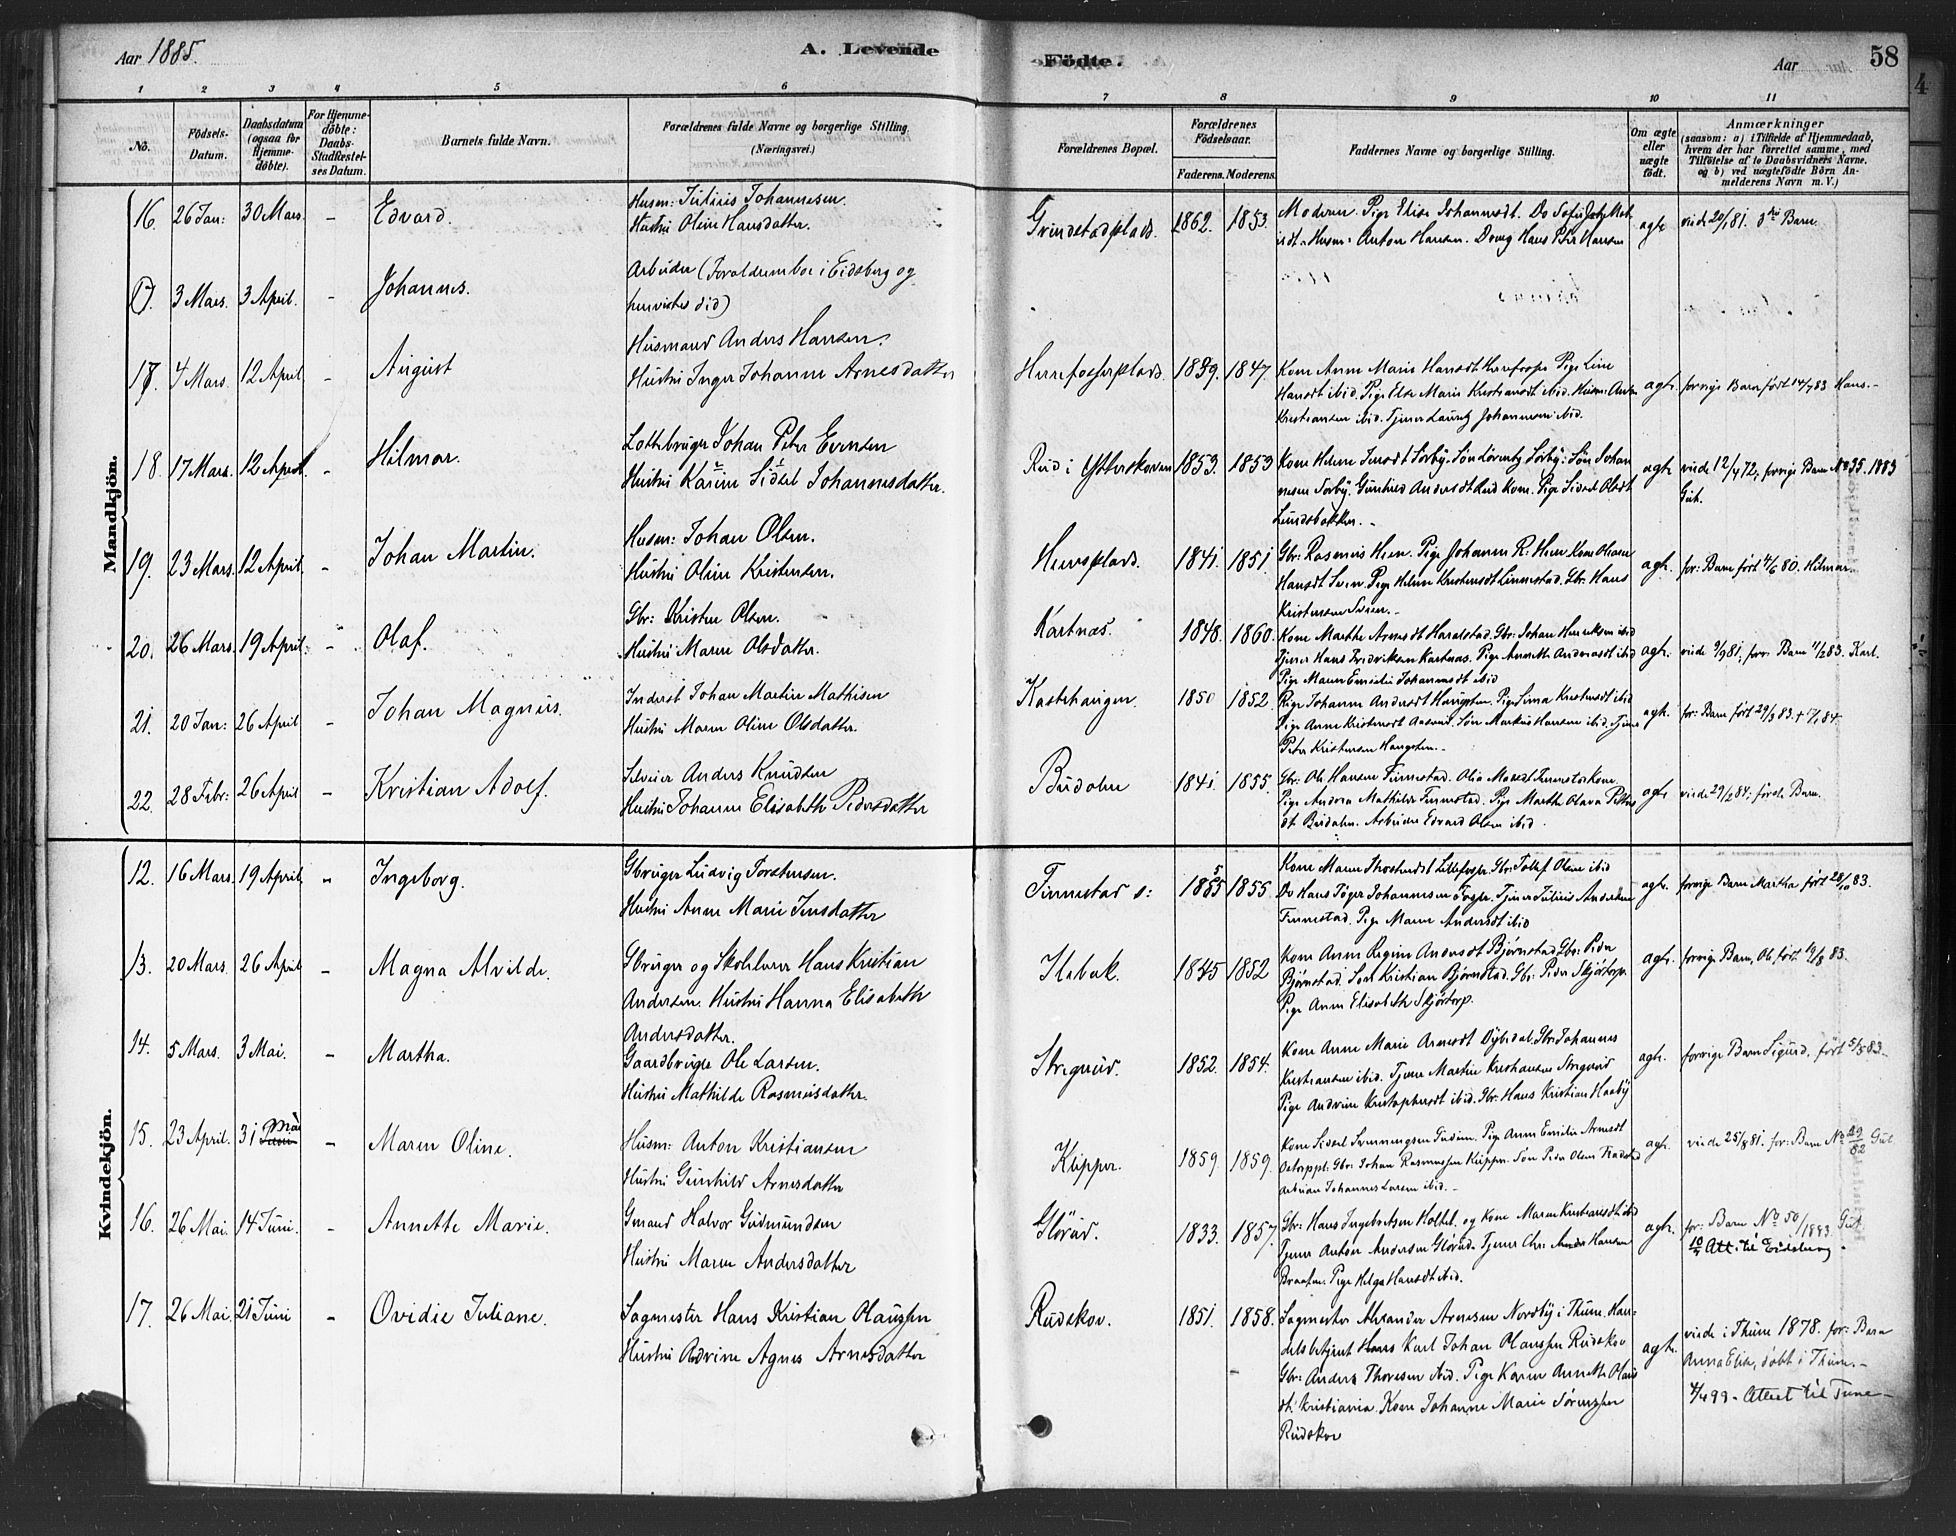 Aar 1885.
A. Levende
Födte.
Aar
58
4
1 2 3 4 5 6 7 8 9 10 11
No.
Födsels-
Datum.
Daabsdatum
(ogsaa for
Hjemme-
döbte).
For Hjemme-
döbte:
Daabs-
Stadfæstel-
ses Datum.
Barnets fulde Navn.
Forældrenes fulde Navne og borgerlige Stilling
(Næringsvei.)
Forældrenes Bopæl.
Forældrenes
Födselsaar.
Faderens. Moderens.
Faddernes Navne og borgerlige Stilling.
Om ægte
eller
uægte
födt.
Anmærkninger
(saasom: a) i Tilfælde af Hjemmedaab,
hvem der har forrettet samme, med
Tilföielse af to Daabsvidners Navne,
og b) ved uægtefödte Börn An-
melderens Navn m. V.)
Mandkjön.
16. 26 Jan: 30 Mars. - Edvard.
Husm: Julius Johannesen.
Hustru Oline Hansdatter.
Grindstadplads. 1862. 1853.
Moderen. Pige Elise Johannsdt.
Husm: Anton Hansen. Dreng Hans Peter Hansen
agte viede 20/1 81. 3die Barn.
17. 3 Mars. 3 April. - Johannes.
Arbeider (Forældrene boe i Eidsberg og
henvistes did)
17. 4 Mars. 12 April - August
Husmand Anders Hansen.
Hustru Inger Johanne Arnesdatter
1839. 1847.
Kone Anne Marie Hansdt
Hansdt ibid. Pige Else Marie Kristiansdt ibid. Husm: Anton
Kristiansen ibid. Tjener Lauritz Johannesen ibid.
agt. forrige Barn født 14/7 83 Hans.-
18. 17 Mars. 12 April. - Hilmar.
Lottebruger Johan Peter Evensen
Hustru Karine Sidsel Johannesdatter.
Rud i Ytterskoven 1853. 1853
Kone Helene Jensdt Sørby.
Sørby. Gunhild Andersdt Rud Kone. Pige Sidsel Olsdt
Lundebakken.-
agt. viede 12/4 72, forrige Barn No 35. 1883
Gut.
19. 23 Mars. 12 April. - Johan Martin.
Husm: Johan Olsen.
Hustru Oline Kristensen.
1841. 1851
Gbr: Rasmus Heen. Pige Johanne R. Heen Kone
Hansdt Svien. Pige Helene Kristensdt Linnestad. Gbr: Hans
Kristensen Svien.-
agt. for: Barn født 4/6 80. Hilmar
20. 26 Mars. 19 April. - Olaf.
Gbr: Kristen Olsen.
Hustru Maren Olsdatter.
Kartnæs. 1848. 1860.
Kone Marthe Arnesdt Harelstad. Gbr: Johan Henriksen ibid
Tjener Hans Fredriksen Kartnæs. Pige Annette Andreasdt ibid
Pige Maren Emilie Johannesdt ibid
agt. viede 9/9 81, for: Barn 11/2 83. Karl.
21. 20 Jan: 26 April - Johan Magnus.
Inderst Johan Martin Mathisen
Hustru Maren Oline Olsdatter.
Kastehaugen 1850 1852.
Pige Johanne Andersdt Haugsten. Pige Lina Kristensdt ibid
Pige Anne Kristensdt Aaserud. Søn Markus Hansen ibid. Tjener
Peter Kristensen Haugsten.-
agt.
22. 28 Febr: 26 April - Kristian Adolf.
Selveier Anders Knudsen
Hustru Johanne Elisabeth Pedersdatter
Budalen 1841 1855.
Gbr: Ole Hansen Finnestad.
Pige Andrea Mathilde Finnestad. Pige Marthe Olava Petters
dt Budalen. Arbeider Edvard Olsen ibid.
agt. viede 29/2 84, første Barn.
Kvindekjön.
12. 16 Mars. 19 April. - Ingeborg.
Gbruger Ludvig Torstensen.
Hustru Anne Marie Jensdatter
Finnestad s: 1855 1855.
Kone Maren Thostensdt Lillefosse. Gbr: Tollef Olsen ibid
Do Hans Jöger Johannesen Fosse. Tjener Julius Andersen
Finnestad. Pige Maren Andersdt ibid
agt. forrige Barn Martha født 28/10 83.
13. 20 Mars. 26 April - Magna Alvilde.
Gbruger og Skolelærer Hans Kristian
Andersen. Hustru Hanna Elisabeth
Andersdatter.
1845 1852
Kone Anne Regine Andersdt Bjørnstad Gbr: Peder
Bjørnstad. Søn Kristian Bjørnstad. Gbr: Peder Skjørtorp.
Pige Anne Elisabeth Skjørtorp.
agt. forrige Barn, Ole født 19/8 83.
14. 5 Mars. 3 Mai. - Martha.
Gaardbruger Ole Larsen.
Hustru Mathilde Rasmusdatter.
Stregsrud. 1852. 1854.
Kone Anne Marie Arnesdt Dybedal. Gbr: Johannes
Kristiansen ibid. Tjener Martin Kristiansen Stregsrud
Pige Andrine Kristophersdt ibid. Gbr: Hans Kristian Haaby
agt. forrige Barn Sigurd, født 5/5 83.
15. 23 April. 31 Mai - Maren Oline.
Husm: Anton Kristiansen
Hustru Gunhild Arnesdatter
Klipper. 1859. 1859.
Kone Sidsel Svenningsen Pige Anne Emilie Arnesdt
Gbr: Johan Rasmussen Klipper. Søn Peder Olsen
Johannes Larsen ibid.-
agt. viede 25/8 81. for: Barn No 29/82 Gut
16. 26 Mai. 14 Juni. - Annette Marie.
Gmand Halvor Gudmundsen
Hustru Maren Andersdatter
Glörud. 1833. 1857.
Gbr: Hans Ingebretsen Holtet. og Kone Maren Kristiansdt ibid
Tjener Anton Andersen Glörud. Tjener Chr: Hansen
Braaten. Pige Helga Hansdt ibid.
agt. for: Barn No 50/1883 Gut
Att. til Eidsberg.
17. 26 Mai. 21 Juni - Ovidie Juliane.
Sagmester Hans Kristian Olaussen
Hustru Andrine Agnes Arnesdatter
Rudskov. 1851. 1858.
Sagmester Alexander Arnesen Nordby i Thune. Han-
delsbetjent Karl Johan Olaussen Rudskov
Gbr: Anders Thoresen ibid. Pige Karen Annette Olaus
dt. Kristiania. Kone Johanne Marie Sørensen
Rudskov
agt. viede i Thune 1878. for: Barn
Anna Elise, døbt i Thune.-
4/4 99 - Attest til Tune-